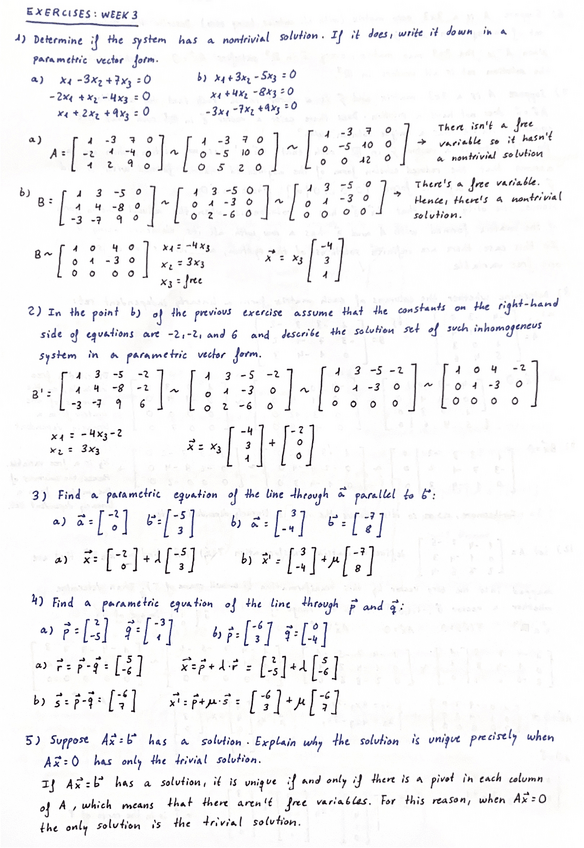 EXERCISES: WEEK 3
1) Determine if the system has a nontrivial solution. If it does, write it down in a
parametric vector form.
a) x1 - 3x2 + 7x3 = 0    b) x1 + 3x2 - 5x3 = 0
-2x1 + x2 - 4x3 = 0    x1 + 4x2 - 8x3 = 0
x1 + 2x2 + 9x3 = 0    -3x1 - 7x2 + 9x3 = 0
a) A = [1 -3 7 0; -2 1 -4 0; 1 2 9 0] ~ [1 -3 7 0; 0 -5 10 0; 0 5 2 0] ~ [1 -3 7 0; 0 -5 10 0; 0 0 12 0] → There isn't a free
variable so it hasn't
a nontrivial solution
b) B = [1 3 -5 0; 1 4 -8 0; -3 -7 9 0] ~ [1 3 -5 0; 0 1 -3 0; 0 2 -6 0] ~ [1 3 -5 0; 0 1 -3 0; 0 0 0 0] → There's a free variable.
Hence, there's a nontrivial
solution.
B ~ [1 0 4 0; 0 1 -3 0; 0 0 0 0]    x1 = -4x3    x⃗ = x3 [-4; 3; 1]
x2 = 3x3
x3 = free
2) In the point b) of the previous exercise assume that the constants on the right-hand
side of equations are -2, -2, and 6 and describe the solution set of such inhomogeneus
system in a parametric vector form.
B' = [1 3 -5 -2; 1 4 -8 -2; -3 -7 9 6] ~ [1 3 -5 -2; 0 1 -3 0; 0 2 -6 0] ~ [1 3 -5 -2; 0 1 -3 0; 0 0 0 0] ~ [1 0 4 -2; 0 1 -3 0; 0 0 0 0]
x1 = -4x3 - 2    x⃗ = x3 [-4; 3; 1] + [-2; 0; 0]
x2 = 3x3
3) Find a parametric equation of the line through a⃗ parallel to b⃗:
a) a⃗ = [-2; 0]  b⃗ = [-5; 3]    b) a⃗ = [3; -4]  b⃗ = [-7; 8]
a) x⃗ = [-2; 0] + λ [-5; 3]    b) x⃗ = [3; -4] + μ [-7; 8]
4) Find a parametric equation of the line through p⃗ and q⃗:
a) p⃗ = [2; -5]  q⃗ = [-3; 1]    b) p⃗ = [-6; 3]  q⃗ = [0; -4]
a) r⃗ = p⃗ - q⃗ = [5; -6]    x⃗ = p⃗ + λ·r⃗ = [2; -5] + λ [5; -6]
b) s⃗ = p⃗ - q⃗ = [-6; 7]    x⃗ = p⃗ + μ·s⃗ = [-6; 3] + μ [-6; 7]
5) Suppose Ax⃗ = b⃗ has a solution. Explain why the solution is unique precisely when
Ax⃗ = 0 has only the trivial solution.
If Ax⃗ = b⃗ has a solution, it is unique if and only if there is a pivot in each column
of A, which means that there aren't free variables. For this reason, when Ax⃗ = 0
the only solution is the trivial solution.